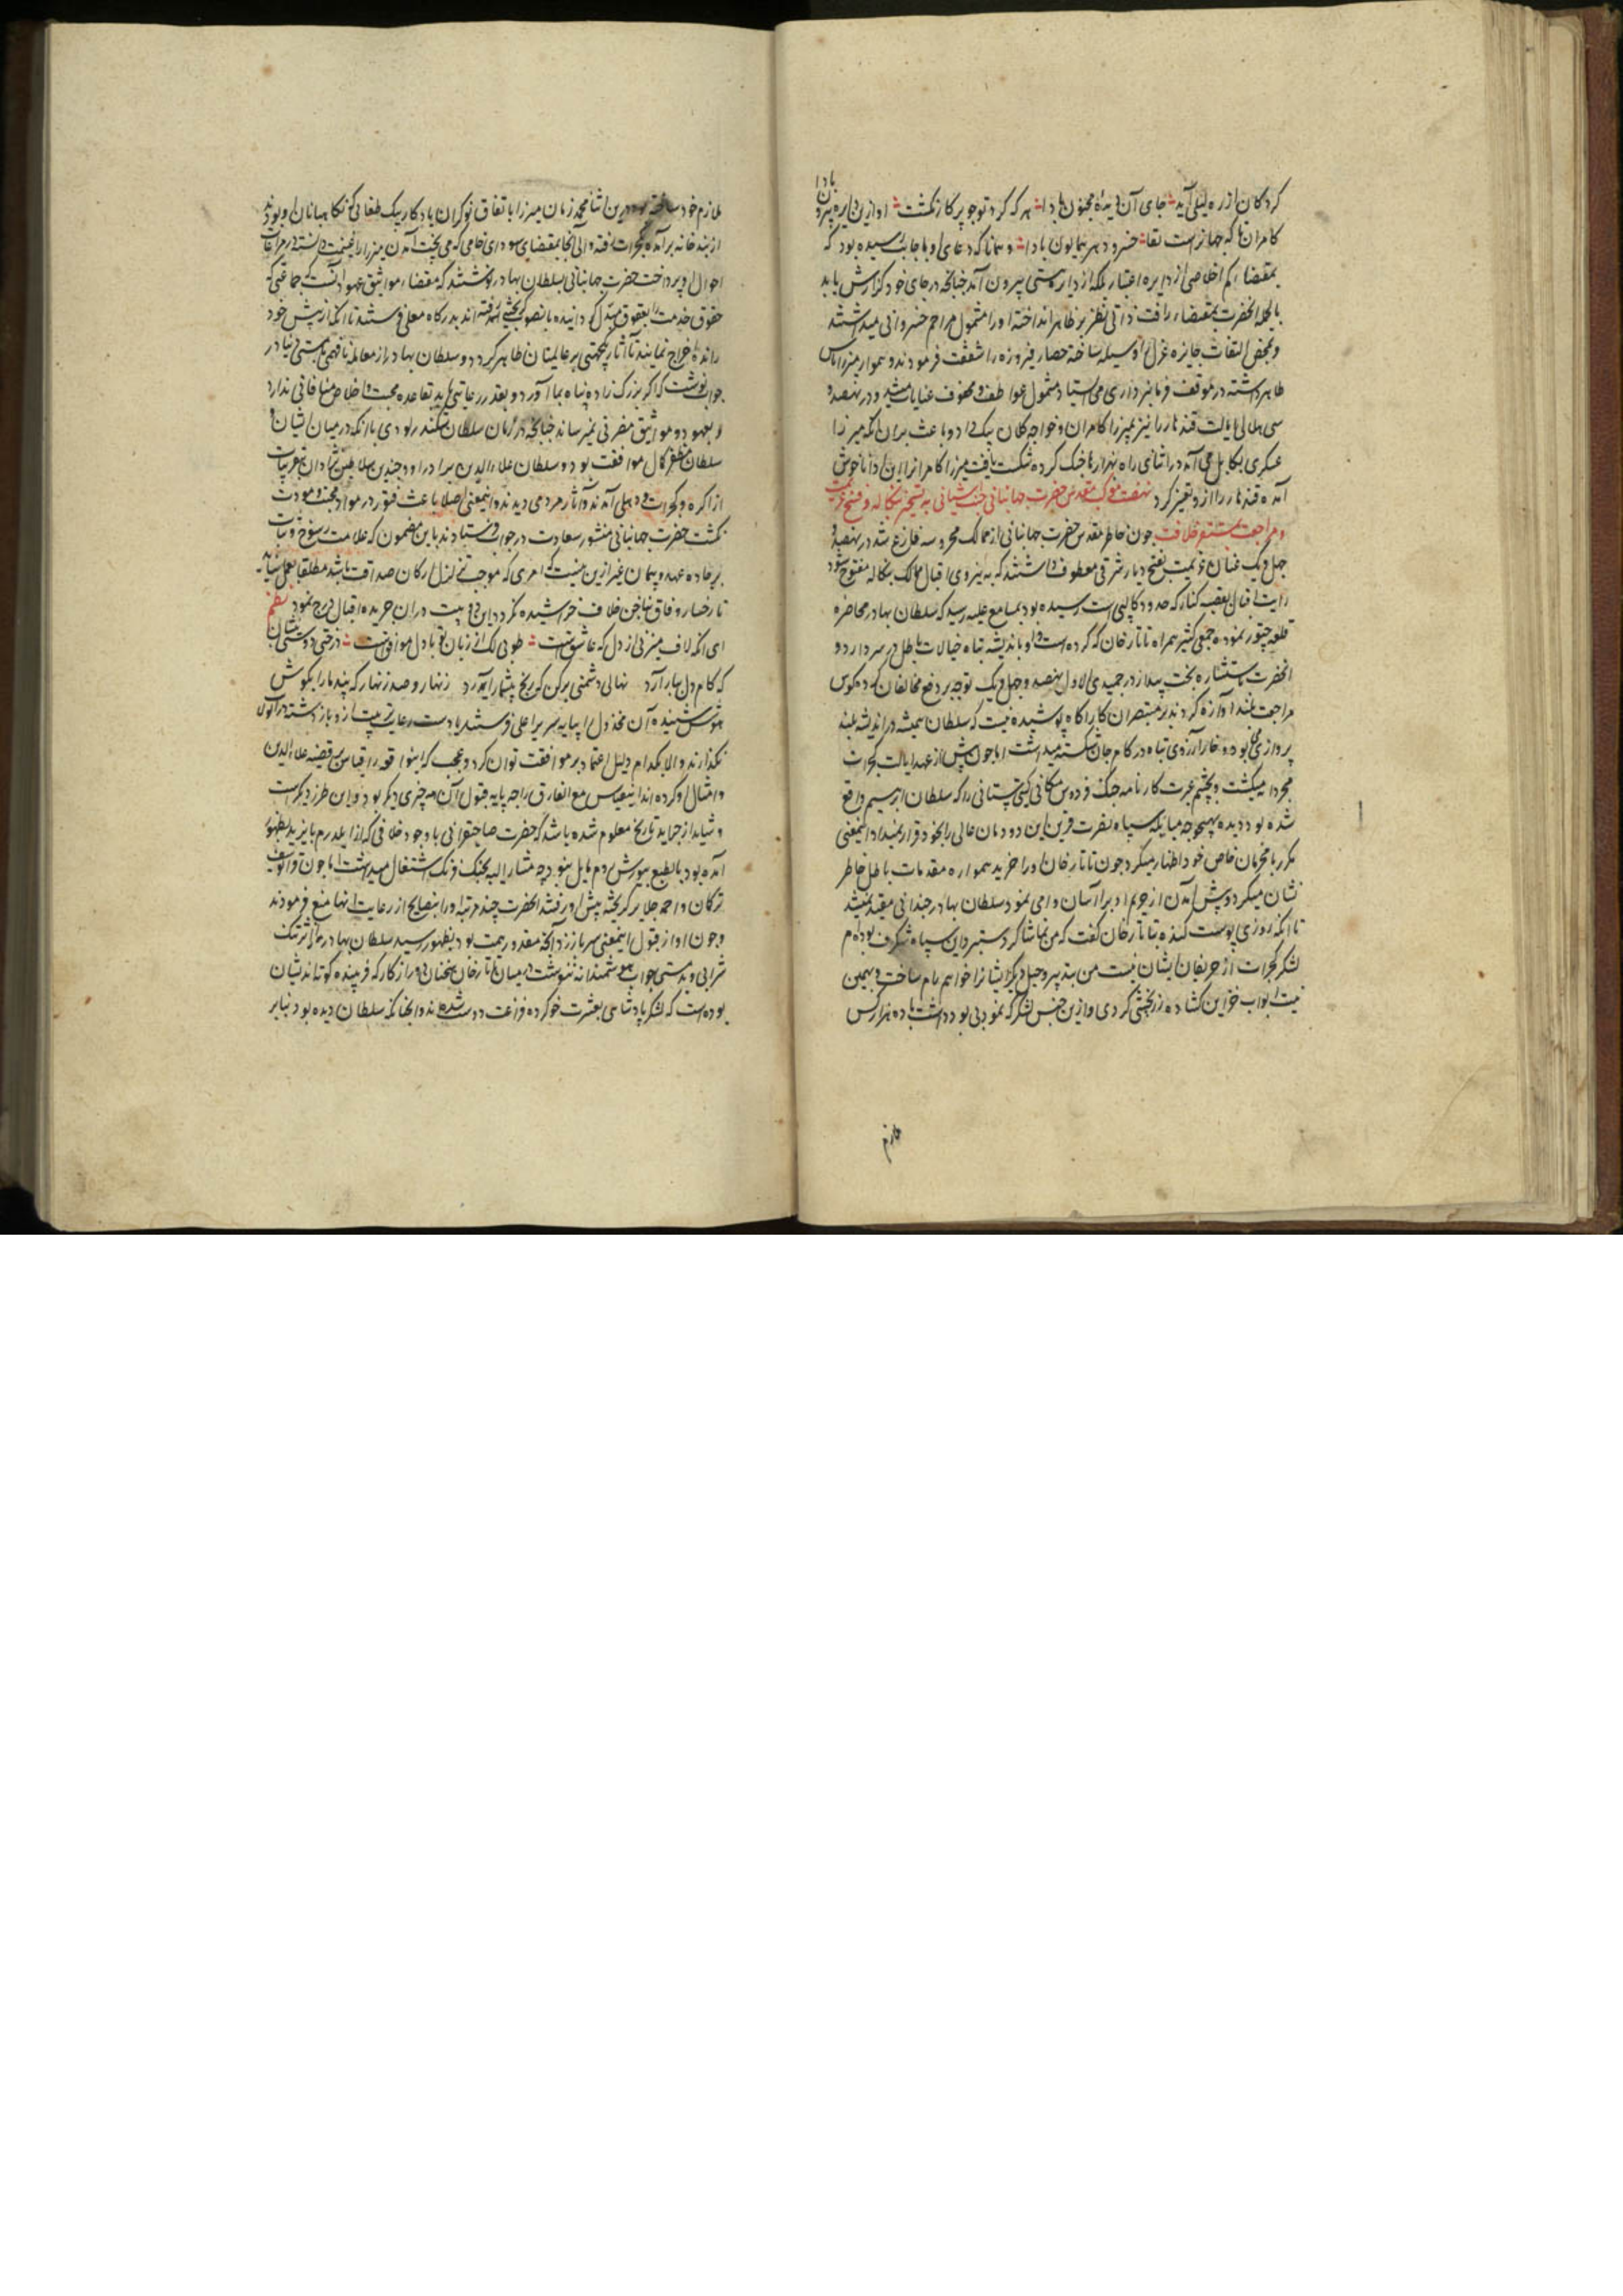 کرد کان از ره لیلی آید جای آن دیدهٔ مجنون بادا هر که کرد تو چو پرکار نکشت او ازین دایره بیرون بادا
کامران تا که جهانراست بقا خسرو دهر همایون بادا و همانا که دعای او باجابت رسیده بود که
بمقتضاء کم اخلاصی از دایره اعتبار بلکه از دایره هستی بیرون آمد چنانچه در جای خود کزارش یابد
بالجمله انحضرت بمقتضاء رافت ذاتی نظر بر ظاهر انداخته او را مشمول مراحم خسروانی میداشتند
و بمحض التفات جایزه غزل را وسیله ساخته حصار فیروزه را شفقت فرمودند و همواره میرزا پاس
ظاهر داشته در موقف فرمانبرداری می ایستاد و مشمول عواطف و محفوف عنایات میشد و در نهصد و
سی ایالت قندهار را نیز بمیرزا کامران و خواجه کلان بیک داد و باعث بران آنکه میرزا
عسکری بکابل می آمد در اثنای راه بهزارها جنک کرده شکست یافت میرزا کامرانرا این ادا ناخوش
آمده قندهار را ازو تغیر کرد نهضت موکب مقدس حضرت جهانبانی جنت آشیانی به تسخیر بنکاله و فسخ عزیمت
و مراجعت بمستقر خلافت چون خاطر مقدس حضرت جهانبانی از ممالک محروسه فارغ شد در نهصد و
چهل و یک عنان عزیمت بفتح دیار شرقی معطوف داشتند که به نیروی اقبال ممالک بنکاله مفتوح شود
رایات اقبال بقصبه کنار که حدود کالپی است رسیده بود بمسامع علیه رسید که سلطان بهادر محاصره
قلعه چتور نموده جمعی کثیر همراه تاتارخان کرده است و او باندیشه تباه خیالات باطل در سر دارد و
انحضرت باستشاره بخت بیدار در جمیدی الاول نهصد و چهل و یک توجه بر دفع مخالفان کرده کوس
مراجعت بلند آوازه کردند بر مستبصران کارآکاه پوشیده نیست که سلطان همیشه در اندیشه بلند
پروازی بود و خار آرزوی تباه در کام جان شکسته میداشت اما چون پیش از عهد ایالت کجرات
مجردانه میکشت و بچشم عبرت کارنامه جنک فردوس مکانی کیتی ستانی را که سلطان ابرهیم واقع
شده بود دیده بهیچوجه مباینه سپاه نصرت قرین این دودمان عالی را بخود قرار نمیداد اینمعنی
مکرر بامحرمان خاص خود اظهار میکرد چون تاتارخان او را خرید همواره مقدمات باطل خاطر
نشان میکرد و پیش آمدن از حریم ادب را آسان وامی نمود سلطان بهادر چندانی مقید نمیشد
تا آنکه روزی پوست کنده بتاتارخان کفت که من تماشاکر دستبرد این سپاه شکرف بوده ام
لشکر کجرات از حریفان ایشان نیست من بتدبیر و حیل دیکر ایشانرا خواهم رام ساخت و بهمین
نیت ابواب خزاین کشاده زربخشی کردی و ازین جنس لشکر که نمودی بود داشت تا ده هزار کس
ملازم
ملازم خود ساخته بود درین اثنا محمد زمان میرزا باتفاق نوکران یادکاربیک طغائی که نکاهبانان او بودند
از بندخانه برآمده بکجرات رفته والی آنجا بمقتضای سودای خامی که می پخت آمدن میرزا را غنیمت دانسته در مراعات
احوال او پرداخت حضرت جهانبانی بسلطان بهادر نوشتند که مقتضاء مواثیق عهود آنست که جماعتی که
حقوق خدمت را بعقوق مبدل کردانیده بانصوب کریخته رفته اند بدرکاه معلی فرستند تا انکه از پیش خود
رانده اخراج نمایند تا آثار یکجهتی بر عالمیان ظاهر کردد و سلطان بهادر از معامله نافهمی یا مستی دنیا در
جواب نوشت که اکر بزرک زاده پناه بما آورد و بقدر رعایتی یابد بقاعده محبت و اخلاص منافاتی ندارد
و بعهود و مواثیق مضرتی نمیرساند چنانچه در زمان سلطان سکندر لودی با آنکه در میان ایشان و
سلطان مظفر کمال موافقت بود و سلطان علاءالدین برادر او و چندین سلاطین زادها بتقریبات
از آکره و دهلی بکجرات آمدند و آثار مردمی دیدند و اینمعنی اصلا باعث فتور در مواد محبت و مودت
نکشت حضرت جهانبانی منشور سعادت در جواب فرستادند باین مضمون که علامت رسوخ و ثبات
بر جاده عهد و پیمان غیر ازین نیست که امری که موجب تزلزل ارکان صداقت باشد مطلقا بعمل نیاید
تا رخسار وفاق بناخن خلاف خراشیده نکردد و این دو بیت دران جریده اقبال درج نمود نظم
ای انکه لاف میزنی از دل که عاشق است طوبی لک ار زبان تو با دل موافق است درخت دوستی بنشان
که کام دل ببار آرد نهال دشمنی برکن که رنج بیشمار آرد زنهار و صد زنهار که پند ما را بکوش
هوش شنیده آن مخذول را بپایه سریر اعلی فرستد یا دست رعایت و تربیت ازو باز داشته در انولا
نکذارند و الا بکدام دلیل اعتماد بر موافقت توان کرد و عجب که اینواقعه را قیاس بر قضیه علاءالدین
و امثال او کرده اند اینقیاس مع الفارق راجه پایه قبول آن امر چیزی دیکر بود و این طرز دیکرست
و شاید از جراید تاریخ معلوم شده باشد که حضرت صاحبقرانی با وجود خلافی که از ایلدرم بایزید بظهور
آمده بود بالطبع بیورش روم مایل نبود چه مشارالیه بجنک فرنک اشتغال میداشت اما چون قرایوسف
ترکان و احمد جلایر کریخته پیش او رفتند انحضرت چند مرتبه او را بنصایح از رعایت آنها منع فرمودند
و چون او از قبول اینمعنی سرباز زد آنچه مقدور همت بود بظهور رسید سلطان بهادر از تنک
شرابی و بدمستی جواب هوشمندانه ننوشت در میان تاتارخان سخنان دور از کار که فریبنده کوته اندیشان
بوده است که لشکر پادشاهی بعشرت خو کرده و فراغت دوست شده اند و آنچنانکه سلطان دیده بود نیابر